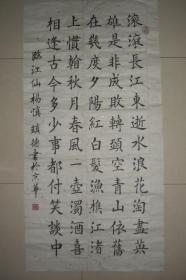 滾滾長江東逝水浪花淘盡英
雄是非成敗轉頭空青山依舊
在幾度夕陽紅白髮漁樵江渚
上慣看秋月春風一壺濁酒喜
相逢古今多少事都付笑談中
臨江仙楊慎 德書於京華